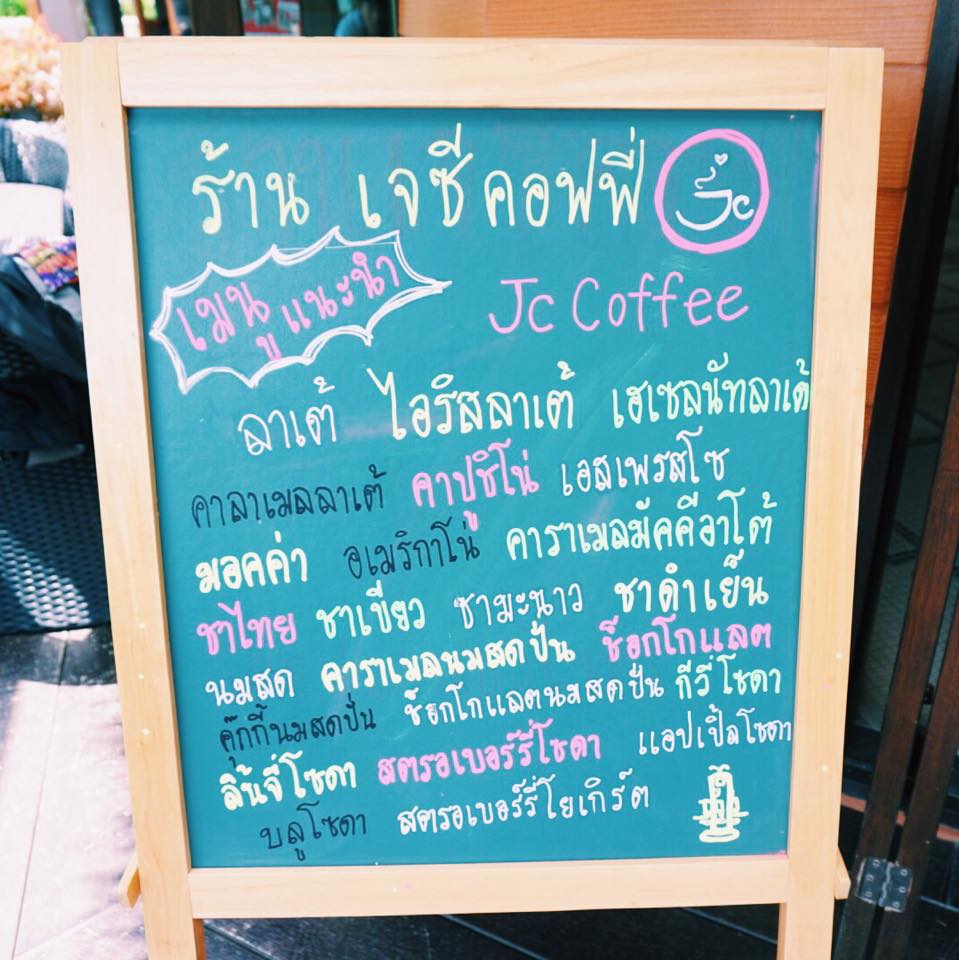 ร้าน เจซีคอฟฟี่ Jc
เมนูแนะนำ
Jc Coffee
ลาเต้ ไอริสลาเต้ เฮเซลนัทลาเต้
คาลาเมลลาเต้ คาปูชิโน่ เอสเพรสโซ
มอคค่า อเมริกาโน่ คาราเมลมัคคีอาโต้
ชาไทย ชาเขียว ชามะนาว ชาดำเย็น
นมสด คาราเมลนมสดปั่น ช็อกโกแลต
คุ๊กกี้นมสดปั่น ช็อกโกแลตนมสดปั่น กีวีโซดา
ลิ้นจี่โซดา สตรอเบอร์รี่โซดา แอปเปิ้ลโซดา
บลูโซดา สตรอเบอร์รี่โยเกิร์ต